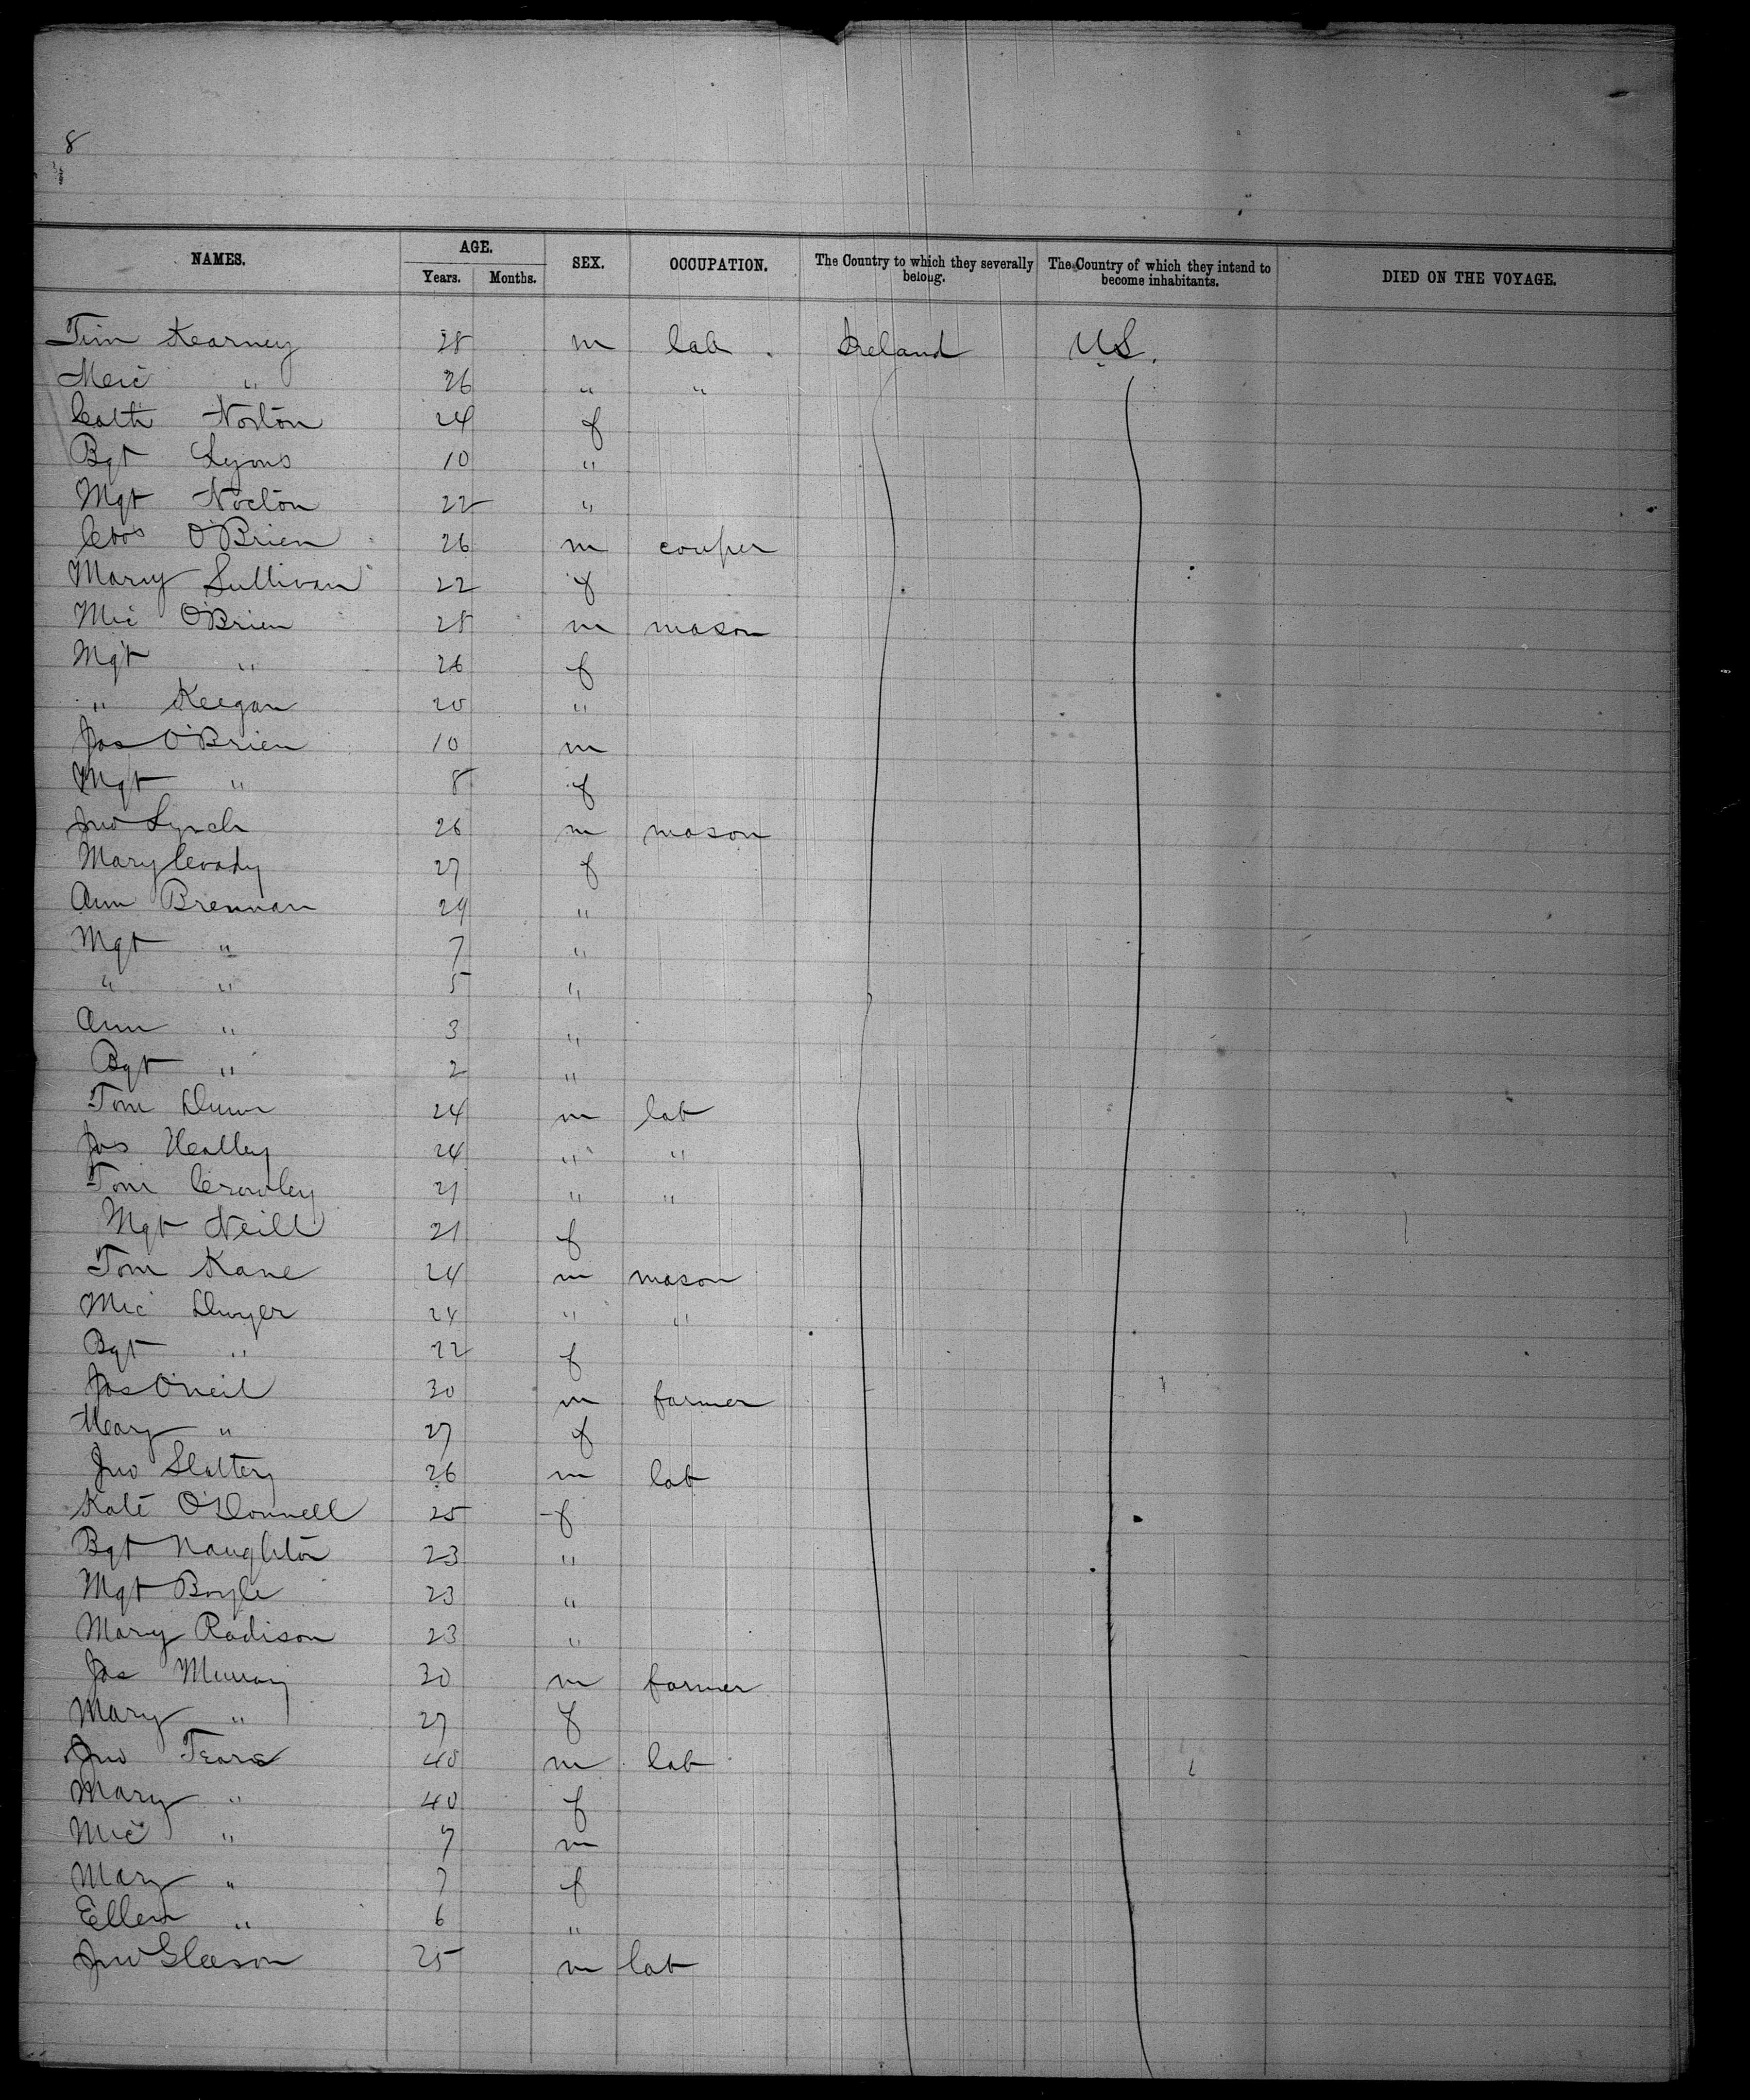 8
NAMES. AGE. SEX. OCCUPATION. The Country to which they severally belong. The Country of which they intend to become inhabitants. DIED ON THE VOYAGE.
Years. Months.
Tim Kearney 28 m lab. Ireland U.S.
Mic " 26 " "
Cath Norton 24 f
Bgt Lyons 10 "
Mgt Nocton 22 "
O'Brien 26 m couper
Mary Sullivan 22 f
Mic O'Brien 28 m mason
Mgt " 26 f
" Keegan 20 "
Jas O'Brien 10 m
Mgt " 8 f
Jno Lynch 26 m mason
Mary 27 f
Ann Brennan 29 "
Mgt " 7 "
" " 5 "
Ann " 3 "
Bgt " 2 "
Tom Dunn 24 m lab
Jas Healley 24 " "
Tom Crowley 21 " "
Mgt Neill 21 f
Tom Kane 24 m mason
Mic Dwyer 24 " "
Bgt " 22 f
Jas O'neil 30 m farmer
Mary " 27 f
Jno Slattery 26 m lab
Kate O'Donnell 25 f
Bgt Naughton 23 "
Mgt Boyle 23 "
Mary Radison 23 "
Jas Murray 30 m farmer
Mary " 27 f
Jno Teare 40 m lab
Mary " 40 f
Mic " 9 m
Mary " 7 f
Ellen " 6 "
Jno Gleeson 25 m lab